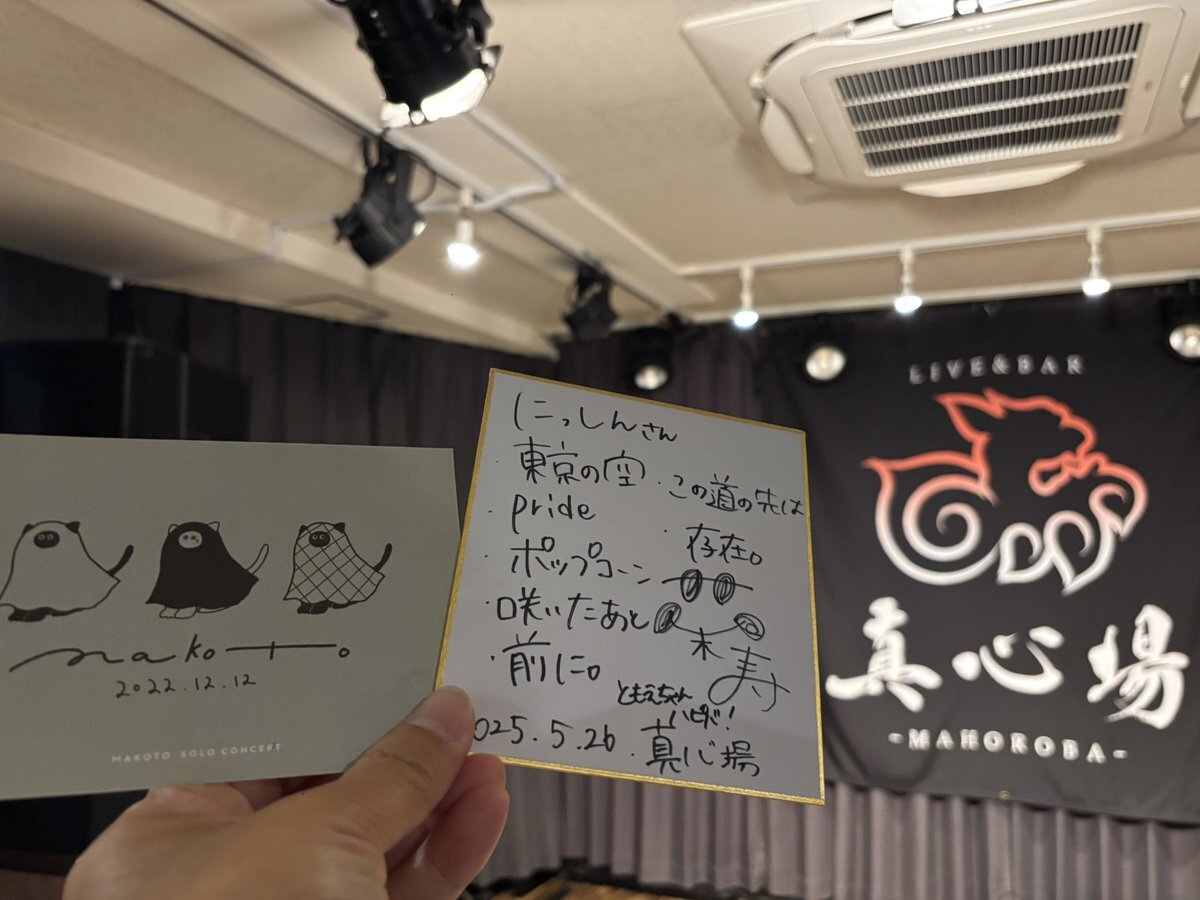 makoto。
2022.12.12
MAKOTO SOLO CONCERT
にっしんさん
東京の空
・pride
・ポップコーン
・咲いたあと
・前に。
・この道の先は
・存在。
寿
ともえちゃん
ハピバ!
2025.5.26.真心場
LIVE&BAR
真心場
-MAHOROBA-